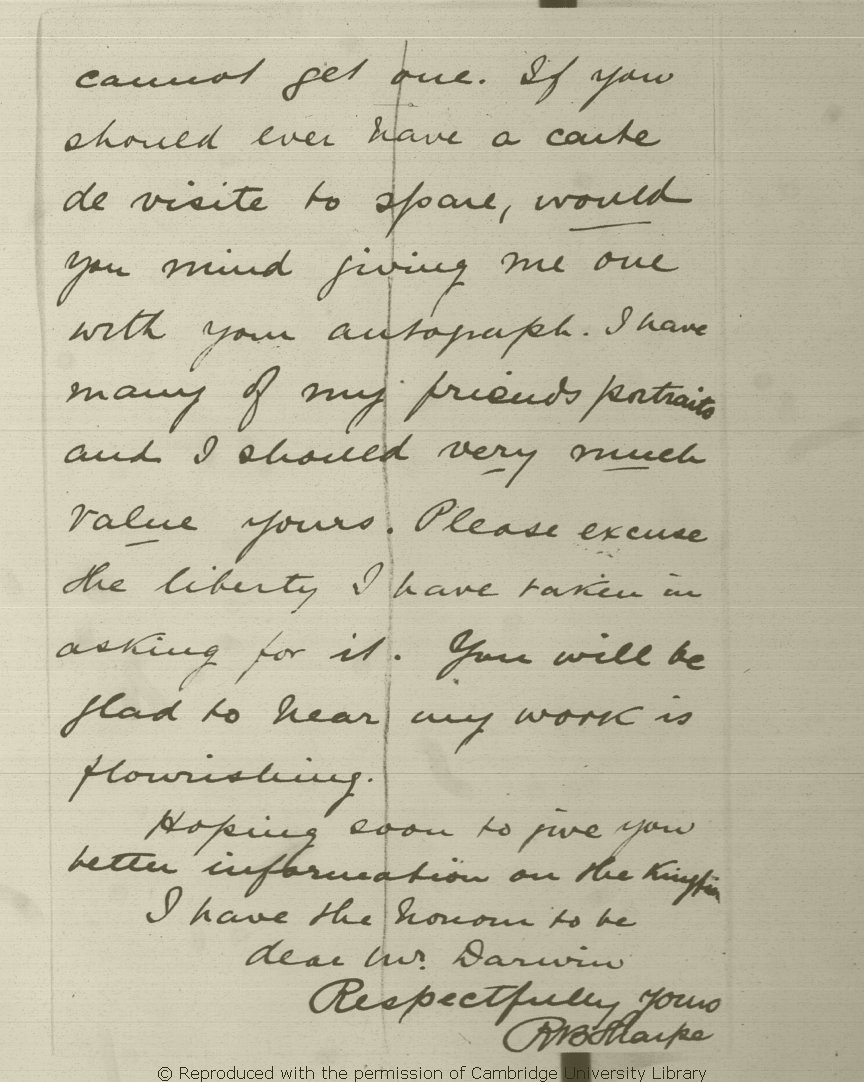 cannot get one. If you
should ever have a carte
de visite to spare, would
you mind giving me one
with your autograph. I have
many of my friends portraits
and I should very much
value yours. Please excuse
the liberty I have taken in
asking for it. You will be
glad to hear my work is
flourishing.
Hoping soon to give you
better information on the
I have the honour to be
dear Mr. Darwin
Respectfully yours
RBSharpe
© Reproduced with the permission of Cambridge University Library